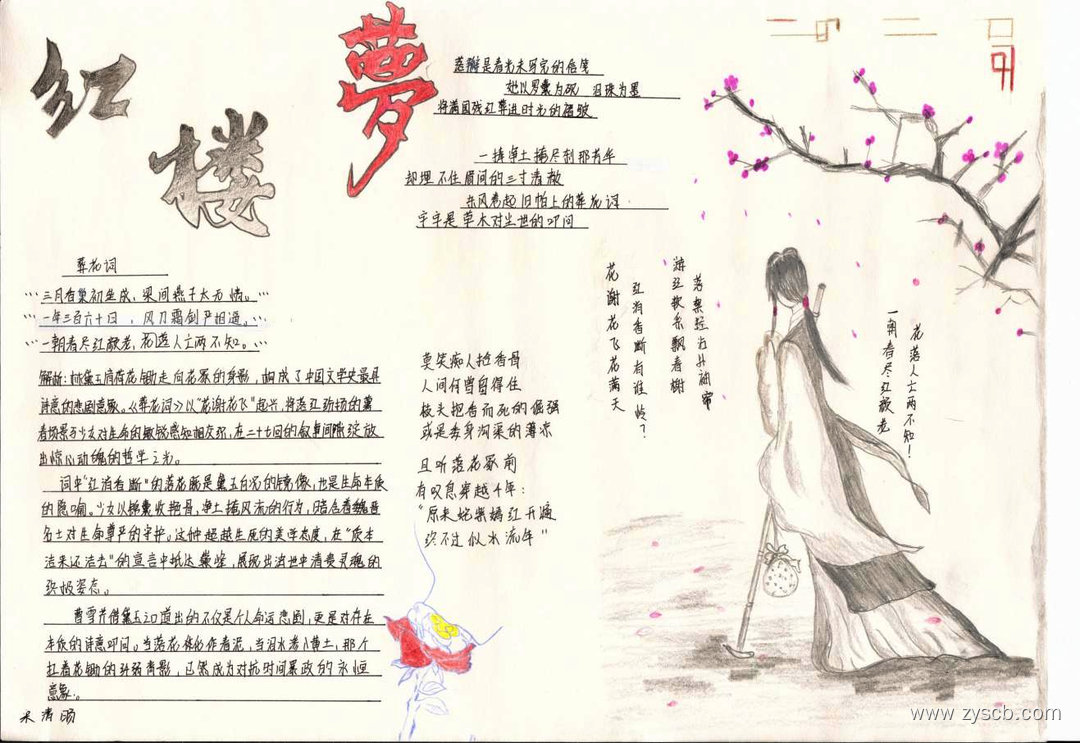 红
楼
夢
落瓣是春光未写完的信笺
她以罗囊为砚 泪珠为墨
将满园残红葬进时光的褶皱
一抔净土掩尽刹那芳华
却埋不住眉间的三寸清愁
东风卷起旧帕上的葬花词
字字是草木对尘世的叩问
葬花词
三月香巢初垒成,梁间燕子太无情。
一年三百六十日,风刀霜剑严相逼。
一朝春尽红颜老,花落人亡两不知。
解析:林黛玉肩荷花锄走向花冢的身影,构成了中国文学史最具
诗意的悲剧意象。《葬花词》以"花谢花飞"起兴,将落红纷扬的暮
春场景与少女对生命的敏锐感知相交织,在二十七回的叙事间隙绽放
出惊心动魄的哲学之光。
词中"红消香断"的落花既是黛玉自况的镜像,也是生命本质
的隐喻。少女以锦囊收艳骨,净土掩风流的行为,暗含着魏晋
名士对生命尊严的守护。这种超越生死的美学态度,在"质本
洁来还洁去"的宣言中抵达巅峰,展现出浊世中清贵灵魂的
终极姿态。
曹雪芹借黛玉之口道出的不仅是个人命运悲剧,更是对存在
本质的诗意叩问。当落花移化作春泥,当泪水渗入黄土,那个
扛着花锄的纤弱背影,已然成为对抗时间暴政的永恒
意象。
莫笑痴人拾香骨
人间何曾自得住
枝头抱香而死的倔强
或是委身沟渠的薄凉
且听落花冢前
有叹息穿越千年:
"原来姹紫嫣红开遍
终不过似水流年"
花谢花飞花满天
红消香断有谁怜?
游丝软系飘春榭
落絮轻沾扑绣帘
一朝春尽红颜老
花落人亡两不知!
www.zyscb.com